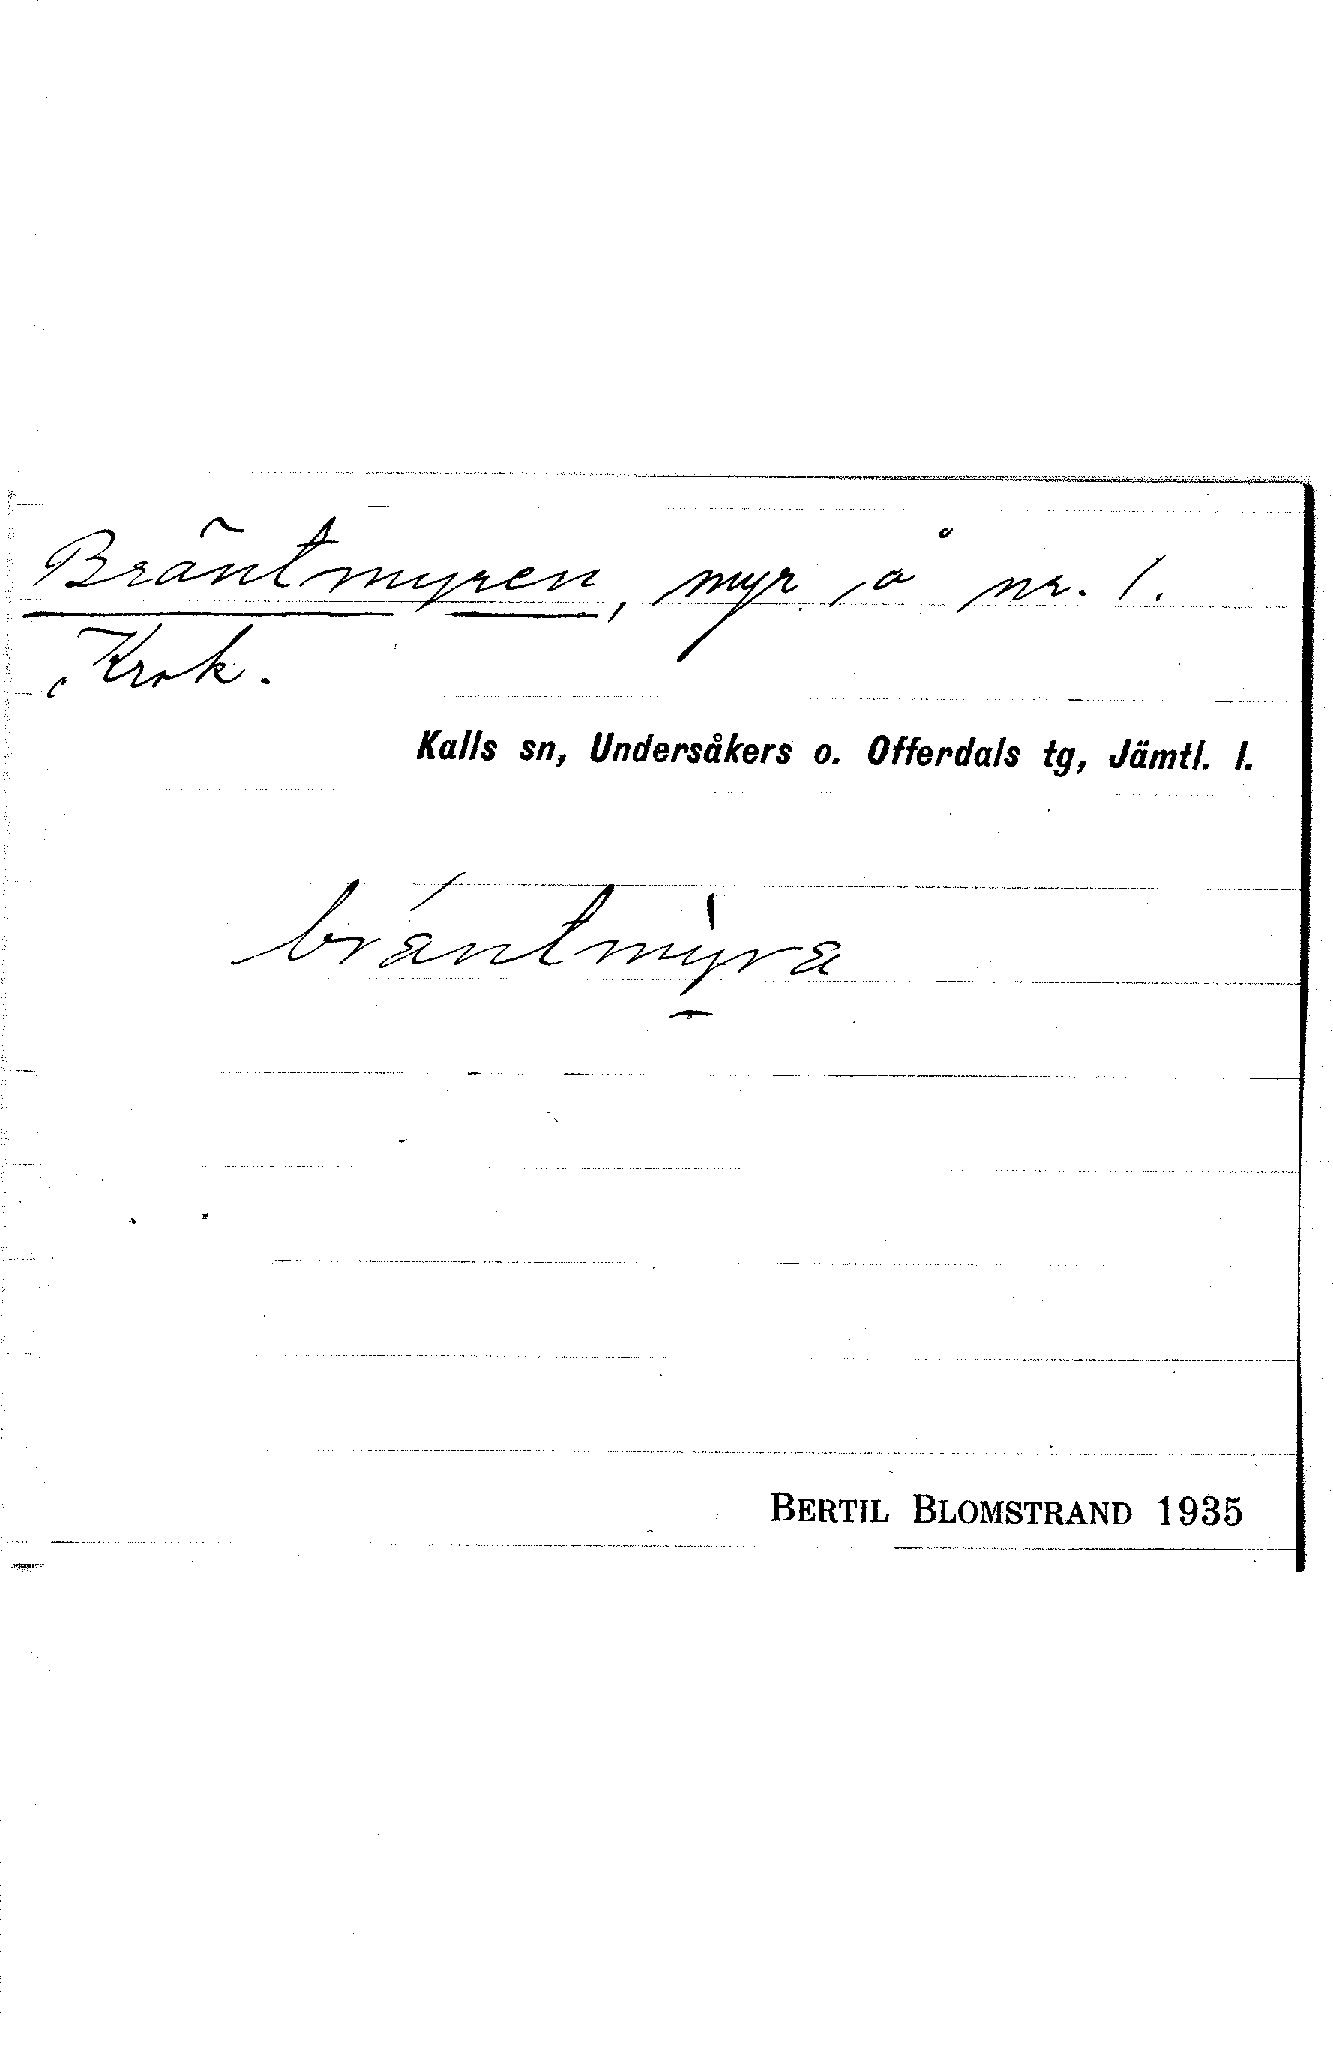 Bräntmyren, myr å nr. 1.
Krok.
Kalls sn, Undersåkers o. Offerdals tg, Jämtl. l.
bräntmyra
BERTIL BLOMSTRAND 1935